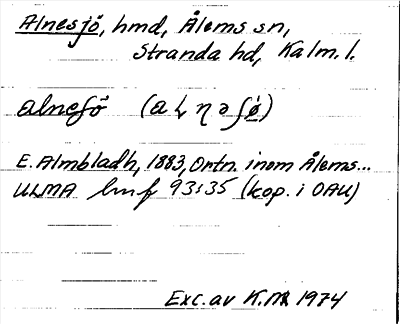 Alnesjö, hmd, Ålems sn,
Stranda hd, Kalm. l.
alnesö
E. Almbladh, 1883, Ortn. inom Ålems...
ULMA hmf 93:35 (kop. i OAU)
Exc. av K.M 1974